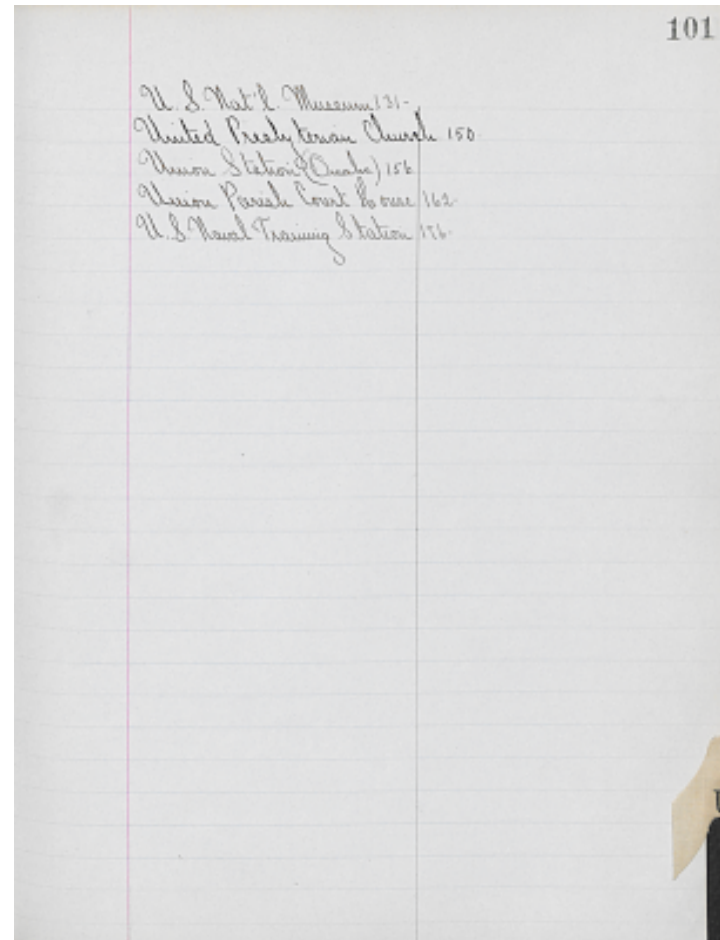 101
U. S. Nat'l. Museum 131-
United Presbyterian Church 150-
Union Station (Omaha) 156
Union Parish Court House 162-
U. S. Naval Training Station